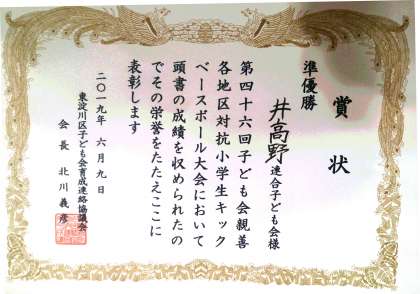 賞状
準優勝
井高野連合子ども会様
第四十六回子ども会親善
各地区対抗小学生キック
ベースボール大会において
頭書の成績を収められたの
でその栄誉をたたえここに
表彰します
二〇一九年 六月 九日
東淀川区子ども会育成連絡協議会
会長 北川義彦